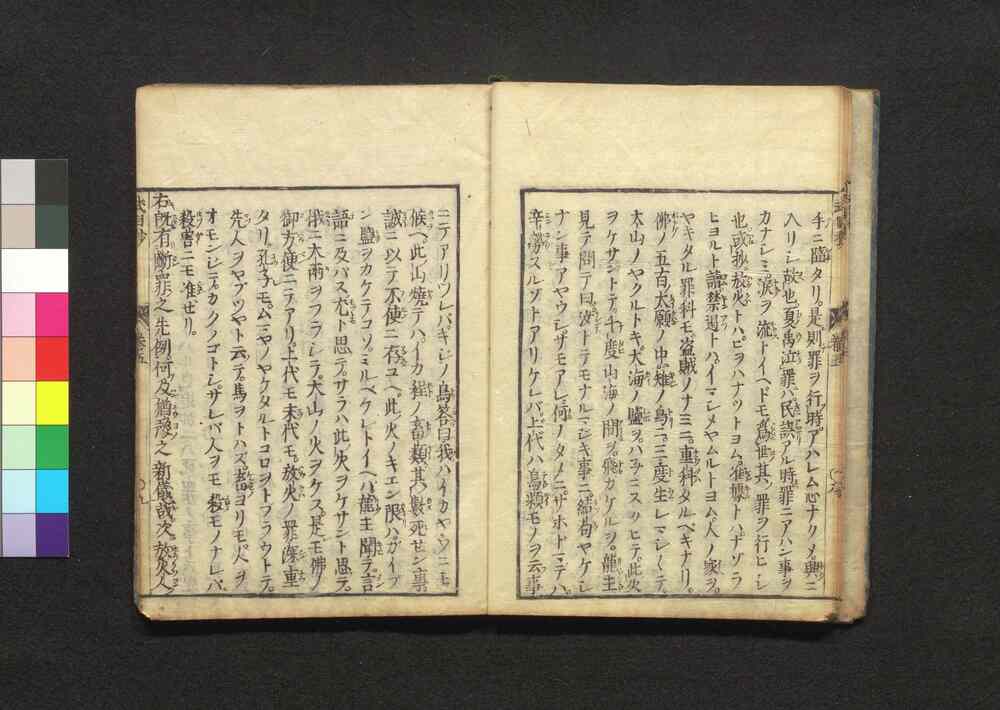 手ニ臨タリ。是則罪ヲ行時アハレム心ナクメ。輿ニ
入リシ故也。夏禹泣罪ハ民誤アル時罪ニアハン事ヲ
カナシミ涙ヲ流トイヘドモ。為世其ノ罪ヲ行ヒシ
也。或放火トハ。ヒヲハナツトヨム。トハナゾラ
ヒヨル。ト禁遏トハイマシメヤムルトヨム。人ノ家ヲ。
ヤキタル罪科モ盗賊ノナミニ。重科タルベキナリ。
佛ノ五百大願ノ中。雉ノ鳥ニ三度生レマシ〱テ。
大山ノヤクルトキ。大海ノ塩ヲ。ハネニスクヒテ。此火
ヲケサントテ。千度山海ノ間ヲ。飛カケルヲ。龍王
見テ問テ曰。彼トテモナルマジキ事ニ
ナン事アヤウシ。ザモアレ何ノタメニ。サホドマデハ。
辛労スルゾトアリケレバ。上代ハ鳥類モノヲ云事
ニテアリツレバ。キジノ鳥答曰。我ハイカヤウニモ
候ヘ。此山焼テハ。イカ程ノ畜類其数死セン事。
誠ニ以テ不便ニ存ユヘ。此火ノキエン限ハ。ガイブ
ン塩ヲカケテコソミルベケレトイヘバ。龍王聞テ言
語ニ及バス。尤ト思テ。サラハ此火ヲケサント思テ。
俄ニ大雨ヲフラシテ。大山ノ火ヲケス。是モ佛ノ
御方便ニテアリ。上代モ末代モ。放火ノ罪深重
タリ。孔子モ。ムマヤノヤケタルトコロヲトフラウトテ。
先人ヲヤブツヤト云テ。馬ヲトハズ。畜ヨリモ人ヲ
オモンジテ。カクノゴトシ。サレバ人ヲモ殺モノナレバ。
殺害ニモ准ゼリ。
右既有断罪之先例。何及猶豫之新儀哉。次放火人